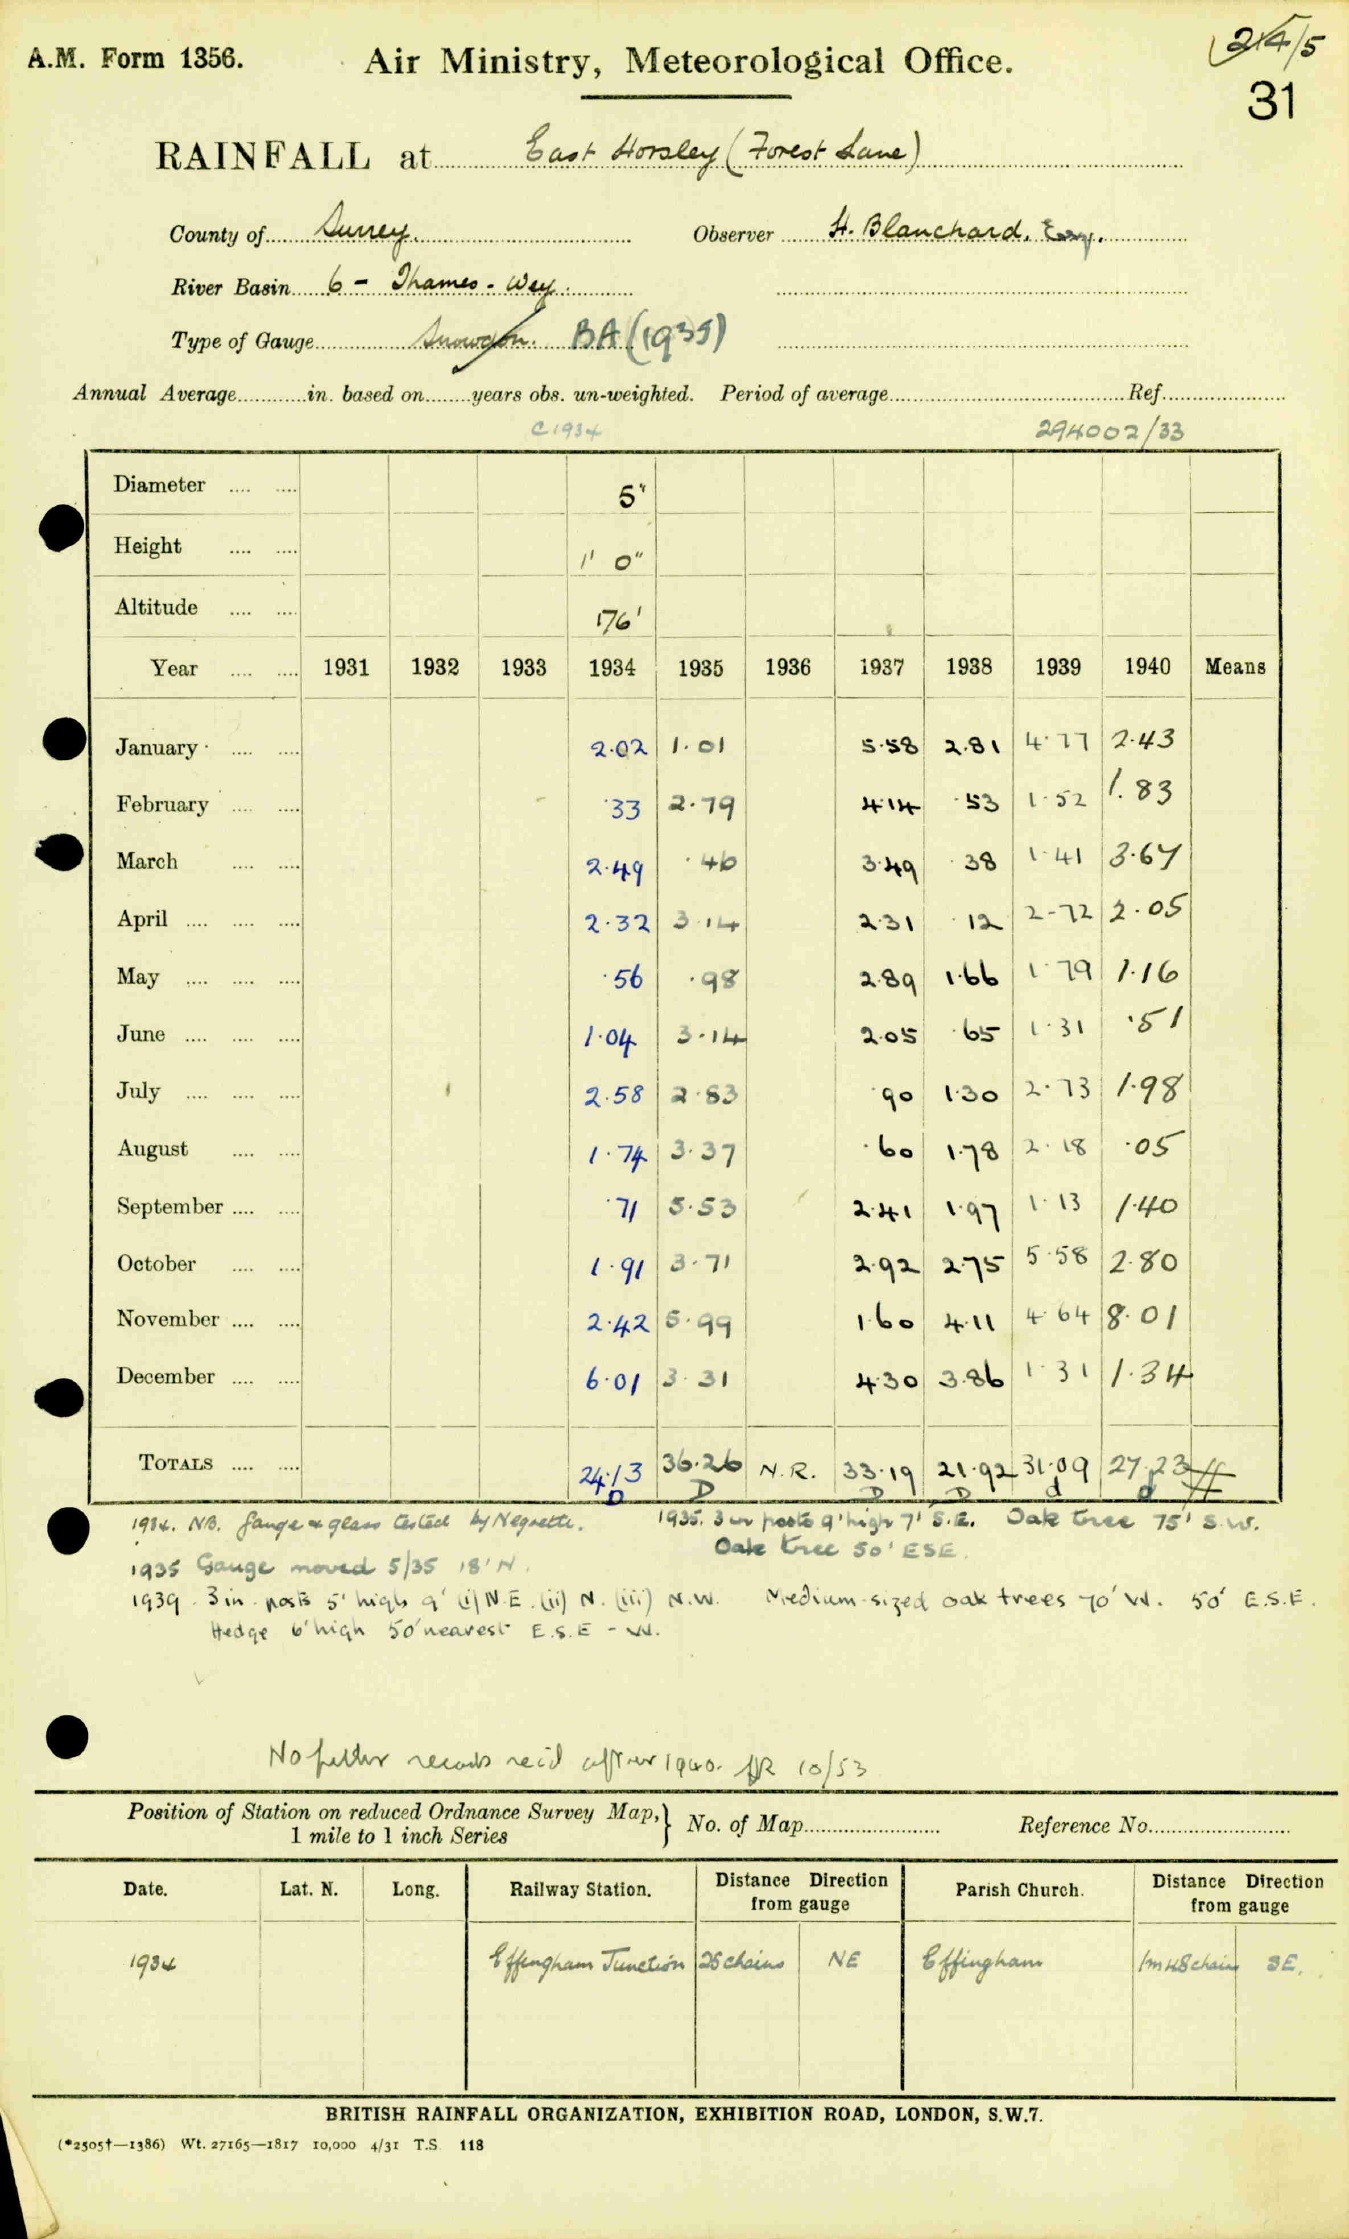 A.M. Form 1356. Air Ministry, Meteorological Office. 214/5
31
RAINFALL at East Horsley (Forest Lane)
County of Surrey. Observer H. Blanchard, Esq.
River Basin 6 - Thames - Wey.
Type of Gauge Snowdon. BA (1935)
Annual Average............in. based on........years obs. un-weighted. Period of average........Ref........
C 1934 294002/33
Diameter .... .... 5"
Height .... .... 1' 0"
Altitude .... .... 176'
Year .... .... 1931 1932 1933 1934 1935 1936 1937 1938 1939 1940 Means
January .... .... 2.02 1.01 5.58 2.81 4.77 2.43
February .... .... .33 2.79 4.14 .53 1.52 1.83
March .... .... 2.49 .46 3.49 .38 1.41 3.67
April .... .... .... 2.32 3.14 2.31 .12 2.72 2.05
May .... .... .... .56 .98 2.89 1.66 1.79 1.16
June .... .... .... 1.04 3.14 2.05 .65 1.31 .51
July .... .... .... 2.58 2.83 .90 1.30 2.73 1.98
August .... .... 1.74 3.37 .60 1.78 2.18 .05
September .... .... .71 5.53 2.41 1.97 1.13 1.40
October .... .... 1.91 3.71 2.92 2.75 5.58 2.80
November .... .... 2.42 5.99 1.60 4.11 4.64 8.01
December .... .... 6.01 3.31 4.30 3.86 1.31 1.34
TOTALS .... .... 24.13 36.26 N.R. 33.19 21.92 31.09 27.23
D D D D d d
1934. NB. Gauge & glass tested by Negretti. 1935. 3 in posts 9' high 7' S.E. Oak tree 75' S.W.
Oak tree 50' ESE.
1935 Gauge moved 5/35 18' N.
1939. 3 in. posts 5' high 9' (i) N.E. (ii) N. (iii) N.W. Medium-sized oak trees 70' W. 50' E.S.E.
Hedge 6' high 50' nearest E.S.E - W.
No further records rec'd after 1940. 10/53
Position of Station on reduced Ordnance Survey Map, } No. of Map........ Reference No........
1 mile to 1 inch Series
Date. Lat. N. Long. Railway Station. Distance Direction from gauge Parish Church. Distance Direction from gauge
1934 Effingham Junction 25 chains NE Effingham 1m 48 chains SE.
BRITISH RAINFALL ORGANIZATION, EXHIBITION ROAD, LONDON, S.W.7.
(*2505†—1386) Wt. 27165—1817 10,000 4/31 T.S. 118